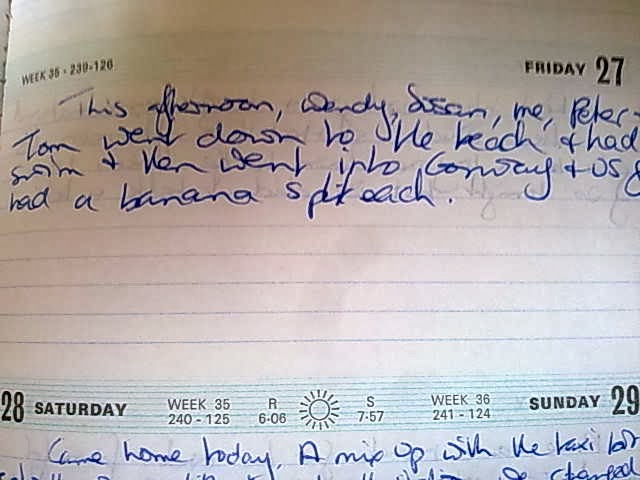 WEEK 35 • 239-126
FRIDAY 27
This afternoon, Wendy, Susan, me, Peter +
Tom went down to the beach + had
swim + then went into Conway + us
had a banana split each.
28 SATURDAY WEEK 35 240 - 125 R 6·06 S 7·57 WEEK 36 241 - 124 SUNDAY 29
Came home today. A mix up with the taxi